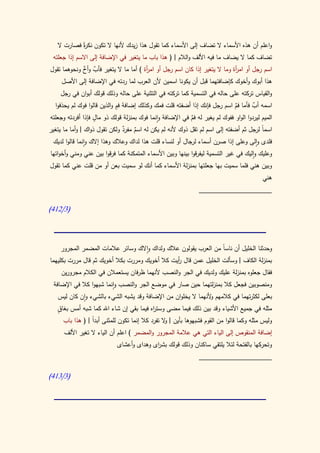 واعلم أن هذه الأسماء لا تضاف إلى الأسماء كما تقول هذا زيدك لأنها لا تكون نكرة فصارت لا
تضاف كما لا يضاف ما فيه الألف واللام ‏[‏ هذا باب ما يتغير في الإضافة إلى الاسم إذا جعلته
اسم رجل أو امرأة وما لا يتغير إذا كان اسم رجل أو امرأة ‏]‏ أما ما لا يتغير فأبٌ وأخٌ ونحوهما تقول
هذا أبوك وأخوك كإضافتهما قبل أن يكونا اسمين لأن العرب لما ردته في الإضافة إلى الأصل
والقياس تركته على حاله في التسمية كما تركته في التثنية على حاله وذلك قولك أبوان في رجل
اسمه أبٌ فأما فمٌ اسم رجل فإنك إذا أضفته قلت فمك وكذلك إضافة فمٍ والذين قالوا فوك لم يحذفوا
الميم ليردوا الواو ففوك لم يغير له فمٌ في الإضافة وإنما فوك بمنزلة قولك ذو مالٍ فإذا أفردته وجعلته
اسماً لرجل ثم أضفته إلى اسم لم تقل ذوك لأنه لم يكن له اسمٌ مفردٌ ولكن تقول ذواك ‏.‏ وأما ما يتغير
فلدى وإلى وعلى إذا صرن أسماء لرجال أو لنساء قلت هذا لداك وعلاك وهذا إلاك وإنما قالوا لديك
وعليك وإليك في غير التسمية ليفرقوا بينها وبين الأسماء المتمكنة كما فرقوا بين عني ومني وأخواتها
وبين هني فلما سميت بها جعلتها بمنزلة الأسماء كما أنك لو سميت بعن أو من قلت عني كما تقول
هني
(412/3)
وحدثنا الخليل أن ناساً من العرب يقولون علاك ولداك وإلاك وسائر علامات المضمر المجرور
بمنزلة الكاف ‏.‏ وسألت الخليل عمن قال رأيت كلا أخويك ومررت بكلا أخويك ثم قال مررت بكليهما
فقال جعلوه بمنزلة عليك ولديك في الجر والنصب لأنهما ظرفان يستعملان في الكلام مجرورين
ومنصوبين فجعل كلا بمنزلتهما حين صار في موضع الجر والنصب وإنما شبهوا كلا في الإضافة
بعلى لكثرتهما في كلامهم ولأنهما لا يخلوان من الإضافة وقد يشبه الشيء بالشيء وإن كان ليس
مثله في جميع الأشياء وقد بين ذلك فيما مضى وستراه فيما بقي إن شاء الله كما شبه أمس بغاق
وليس مثله وكما قالوا من القوم فشبهوها بأين ‏.‏ ولا تفرد كلا إنما تكون للمثنى أبداً ‏[‏ هذا باب
إضافة المنقوص إلى الياء التي هي علامة المجرور والمضمر ‏]‏ اعلم أن الياء لا تغير الألف
وتحركها بالفتحة لئلا يلتقي ساكنان وذلك قولك بشراي وهداي وأعشاى
(413/3)